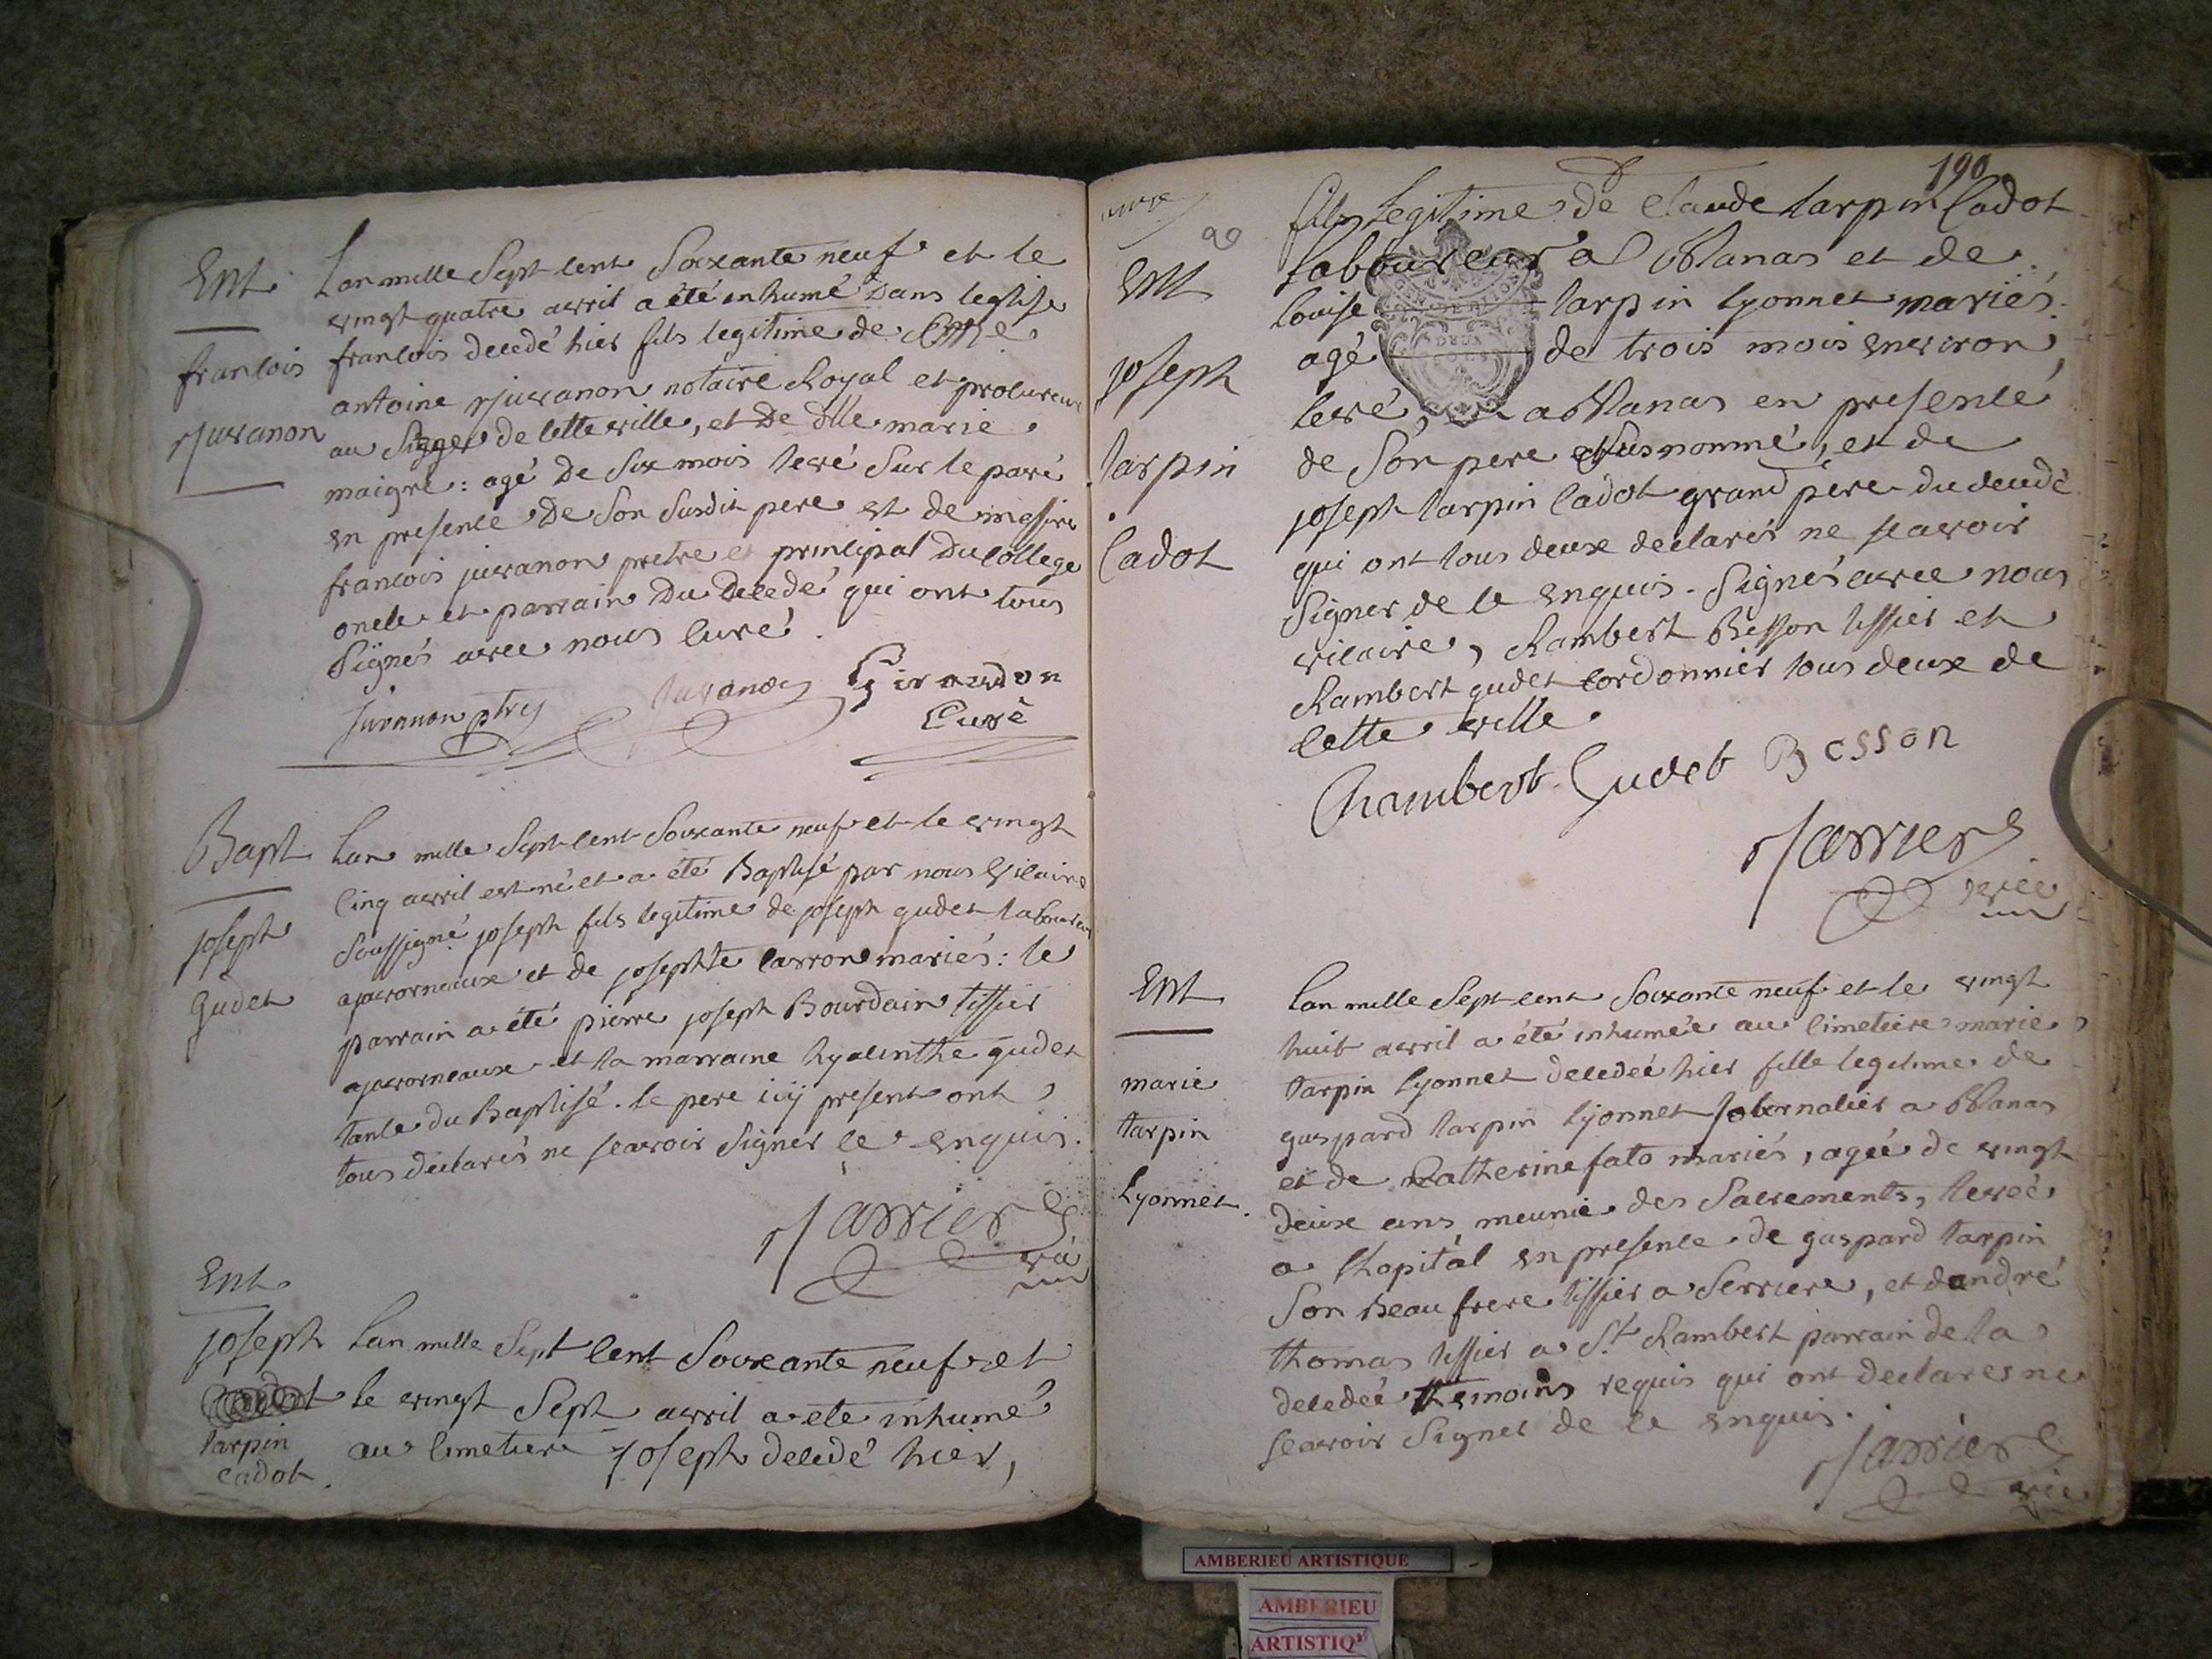 Ent.
francois
juvanon
Lan mille Sept cent Soixante neuf et le
vingt quatre avril a été inhumé Dans leglise
francois decedé hier fils legitime de Mtre
antoine juvanon notaire Royal et procureur
au Siege de cette ville, et De dlle marie
maigre : agé De Six mois levé Sur le pavé
en presence De Son Susdit pere et de messire
francois juvanon pretre et principal Du College
oncle et parrain Du Decedé qui ont tous
Signés avec nous curé.
Juvanon ptre Juvanon Giraudon
Curé
Bapt
joseph
Gudet
Lan mille Sept cent Soixante neuf et le vingt
cinq avril est né et a été Baptisé par nous Vicaire
Soussigné joseph fils legitime de joseph gudet laboureur
a javornaux et de josephte carron mariés : le
parrain a été pierre joseph Bourdain tissier
a javorneaux et la marraine hyacinthe gudet
tante du Baptisé. le pere icy present ont
tous declarés ne scavoir Signer de ce enquis.
jarrier
vic
Ent.
joseph
tarpin
cadot.
Lan mille Sept cent Soixante neuf et
le vingt Sept avril a ete inhumé
au cimetiere joseph decedé hier,
190
Ent
joseph
tarpin
Cadot
fils legitime de Claude tarpin Cadot
laboureur a Blanas et de
louise tarpin lyonnet mariés.
agé de trois mois environ,
levé, a Blanas en presence
de Son pere Susnommé, et de
joseph tarpin Cadot grand pere du decedé
qui ont tous deux declarés ne scavoir
Signer de ce enquis. Signés avec nous
vicaire, Rambert Besson tissier et
Rambert gudet cordonnier tous deux de
cette ville.
Chambert Gudet Besson
jarrier
vic
Ent
marie
tarpin
Lyonnet.
Lan mille Sept cent Soixante neuf et le vingt
huit avril a été inhumée au cimetiere marie
tarpin lyonnet decedeé hier fille legitime de
gaspard tarpin lyonnet journalier a Blanas
et de Catherine fato mariés, ageé de vingt
deux ans meunie des Sacrements, leveé
a lhopital en presence de gaspard tarpin
Son beau frere tissier a Serriere, et dandré
thomas tissier a St. Rambert parrain de la
decedeé temoins requis qui ont declares ne
scavoir Signer de ce enquis.
jarrier
vic.
AMBERIEU ARTISTIQUE
AMBERIEU
ARTISTIQ